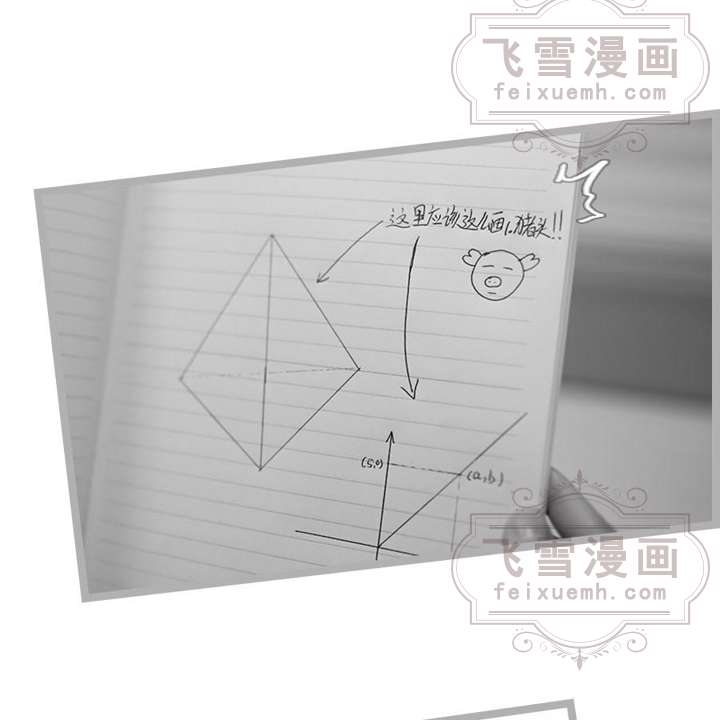 飞雪漫画
feixuemh.com
这里应该这么画，猪头!!
(5,0)
(a,b)
飞雪漫画
feixuemh.com